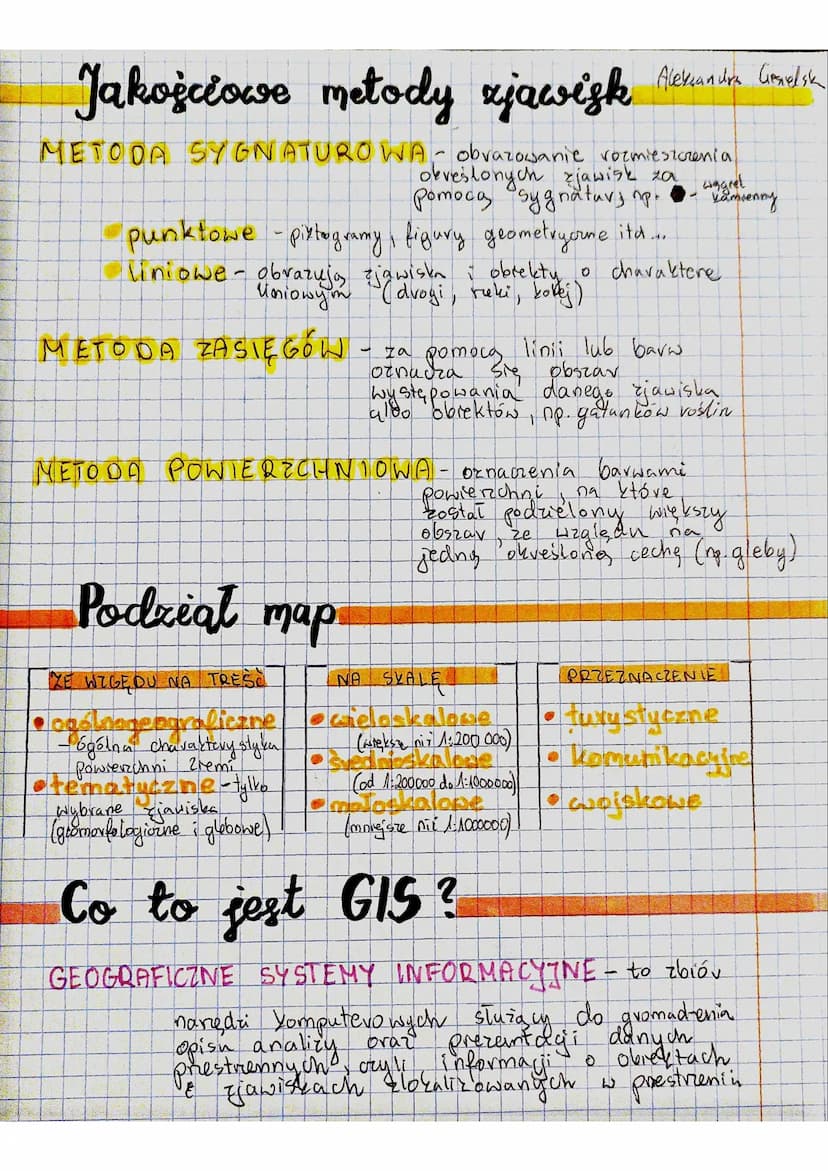 Jakościowe metody zjawisk
Aleksandra
METODA SYGNATUROWA - obrazowanie rozmieszczenia
określonych zjawisk za
pomocą sygnatur, np. ⬢ - węgiel
kamienny
• punktowe - piktogramy, figury geometryczne itd...
• liniowe - obrazują zjawiska i obiekty o charakterze
liniowym (drogi, rzeki, kolej)
METODA ZASIĘGÓW - za pomocą linii lub barw
oznacza się obszar
występowania danego zjawiska
albo obiektów, np. gatunków roślin
METODA POWIERZCHNIOWA - oznaczenia barwami
powierzchni, na które
został podzielony większy
obszar, ze względu na
jedną określoną cechę (np. gleby)
Podział map
ZE WZGĘDU NA TREŚĆ
• ogólnogeograficzne
- ogólna charakterystyka
powierzchni ziemi
• tematyczne - tylko
wybrane zjawiska
(geomorfologiczne i glebowe)
NA SKALĘ
• wieloskalowe
(większe niż 1:200 000)
• średnioskalowe
(od 1:200000 do 1:1000000)
• małoskalowe
(mniejsze niż 1:1000000)
PRZEZNACZENIE
• turystyczne
• komunikacyjne
• wojskowe
Co to jest GIS?
GEOGRAFICZNE SYSTEMY INFORMACYJNE - to zbiór
narzędzi komputerowych służący do gromadzenia
opisu analizy oraz prezentacji danych
przestrzennych, czyli informacji o obiektach
i zjawiskach zlokalizowanych w przestrzeni